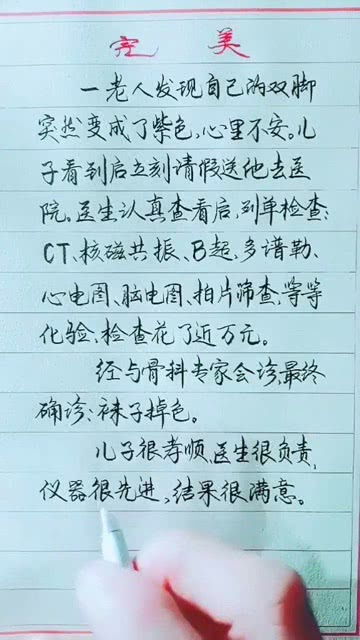 完 美
一老人发现自己的双脚
突然变成了紫色,心里不安。儿
子看到后立刻请假送他去医
院。医生认真查看后,列单检查:
CT、核磁共振、B起,多谱勒、
心电图、脑电图、拍片筛查,等等
化验,检查花了近万元。
经与骨科专家会诊,最终
确诊:袜子掉色。
儿子很孝顺,医生很负责,
仪器很先进,结果很满意。